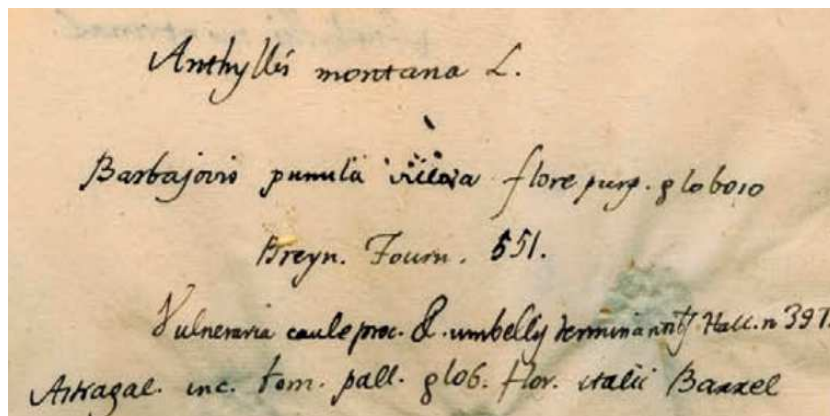 Anthyllis montana L.
Barbajovis pumila villosa flore purp. globoso
Breyn. Tourn. 551.
Vulneraria caule proc. & umbellis terminantib Hall. n 397.
Astragal. inc. tom. pall. glob. flor. italic Barrel